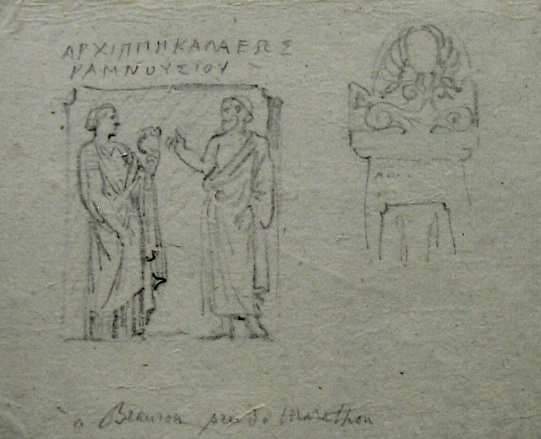 ΑΡΧΙΠΠΗΚΑΛΛΕΩΣ
ΡΑΜΝΟΥΣΙΟΥ
a Beauron près de Marathon